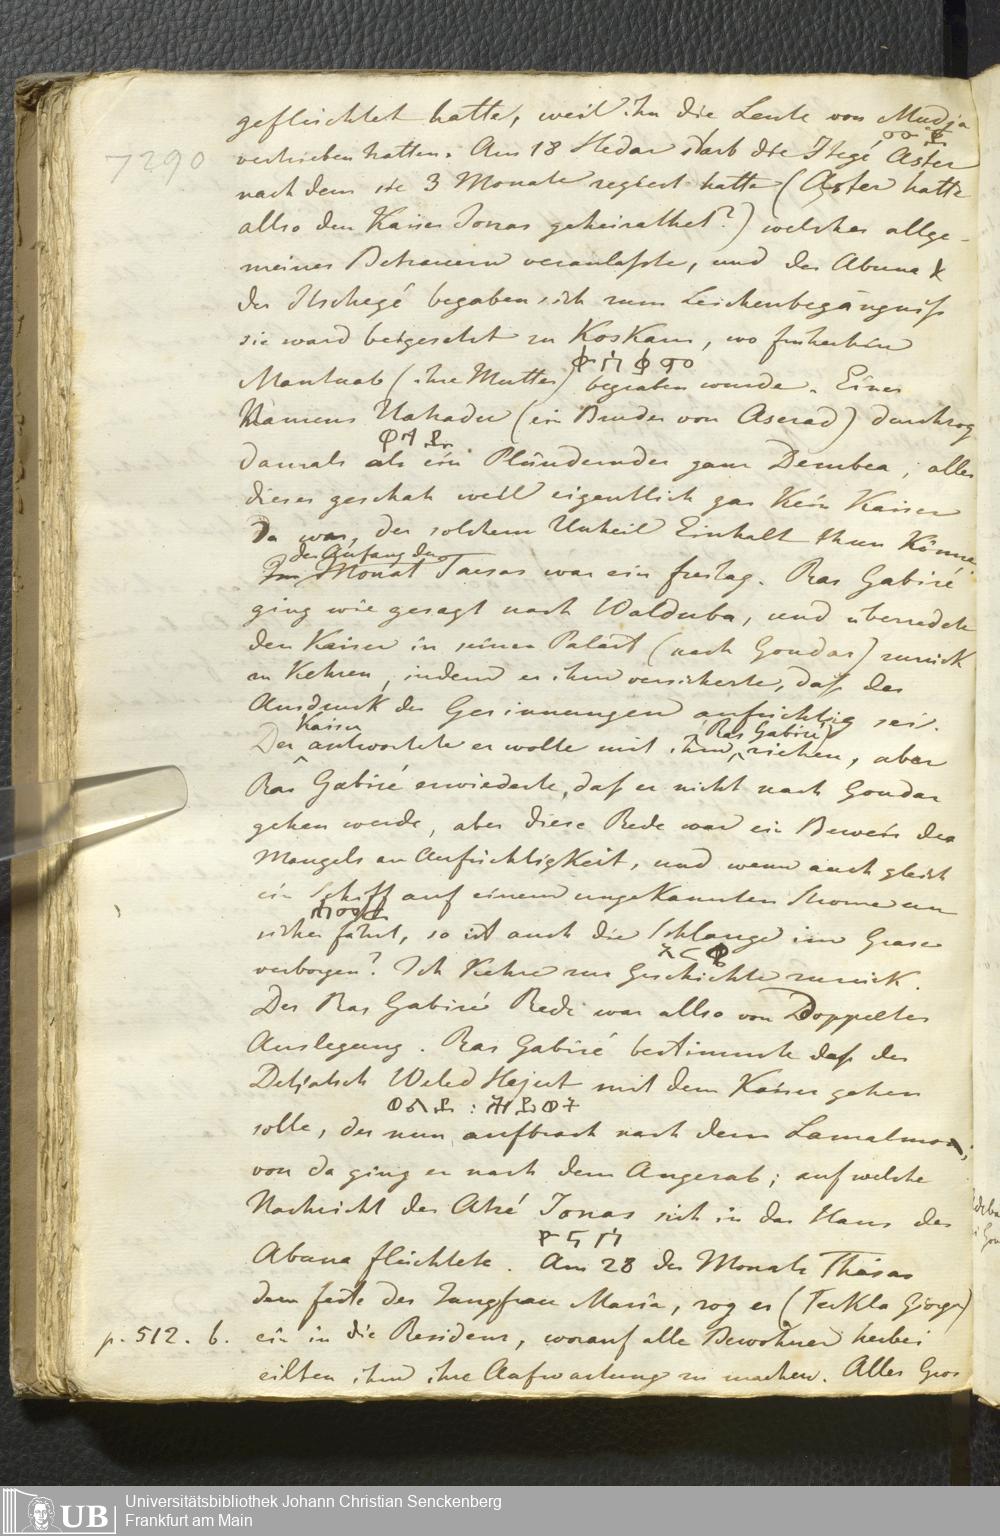 geflüchtet hatte, weil ihn die Leute von Mudja
7290
vertrieben hatten. Am 18 Hedar starb die Itegé Aster
nach dem sie 3 Monate regiert hatte (Aster hatte
allso den Kaiser Jonas geheirathet?) welches allge-
meines Betrauern veranlaßte, und der Abuna &
der Itschegé begaben sich zum Leichenbegängniß
sie ward beigesetzt zu Koskam, wo früherhin
ቍስቋም
Mantuab (ihre Mutter) begraben wurde. Einer
Namens (ein Bruder von Aserad) durchzog
damals als ein Plündernder ganz Dembea, alles
dieses geschah weil eigentlich gar Kein Kaiser
da war, der solchem Unheil Einhalt thun Könne.
der Anfang des
Monat Taesas war ein freitag. Ras Gabiré
ging wie gesagt nach Walduba, und überredete
den Kaiser in seinen Palast (nach Gondar) zurück
zu Kehren, indem er ihm versicherte, daß der
Ausdruck der Gesinnungen aufrichtig sei.
Kaiser (Ras Gabiré)
Der antwortete er wolle mit ihm ziehen, aber
Ras Gabiré erwiederte, daß er nicht nach Gondar
gehen werde, aber diese Rede war ein Beweis des
Mangels an Aufrichtigkeit, und wenn auch gleich
ein Schiff auf einem ungekannten Strome un
sicher fährt, so ist auch die Schlange im Grase
verborgen? Ich Kehre zur Geschichte zurück.
Des Ras Gabiré Rede war allso von Doppelter
Auslegung. Ras Gabiré bestimmte daß der
Detjatsch Weled Hejust mit dem Kaiser gehen
solle, der nun aufbrach nach dem Lamalmon;
von da ging er nach dem Angerab; auf welche
Nachricht der Atzé Jonas sich in das Haus des
ዮናስ
Abuna flüchtete. Am 28 des Monats Thesas
dem feste der Jungfrau Maria, zog er (Teckla Giorgis)
p. 512. b. ein in die Residenz, worauf alle Bewohner herbei
eilten ihm ihre Aufwartung zu machen. Alles Gros
Universitätsbibliothek Johann Christian Senckenberg
UB Frankfurt am Main